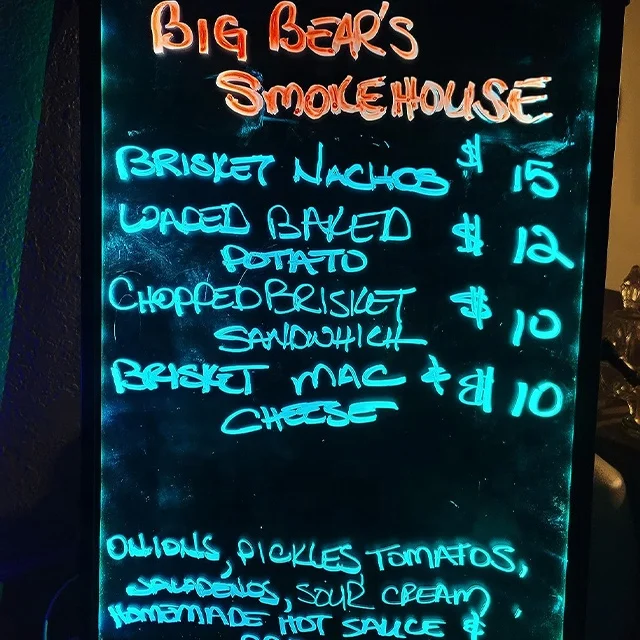 BIG BEAR'S
SMOKEHOUSE
BRISKET NACHOS $ 15
LOADED BAKED
POTATO $ 12
CHOPPED BRISKET
SANDWHICH $ 10
BRISKET MAC & $ 10
CHEESE
ONIONS, PICKLES TOMATOS,
JALAPENOS, SOUR CREAM,
HOMEMADE HOT SAUCE &